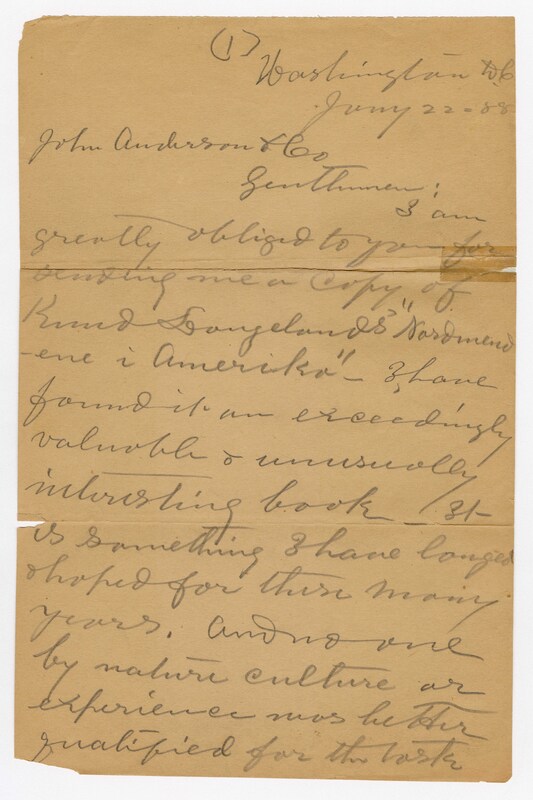 (1)
Washington D.C
Jany 22-88
John Anderson & Co
Gentlemen:
I am
greatly obliged to you for
sending me a copy of
Knud Langelands "Nordmend
-ene i Amerika" - I have
found it an exceedingly
valuable & unusually
interesting book - It
is something I have longed
& hoped for these many
years. And no one
by nature culture or
experience was better
qualified for the task